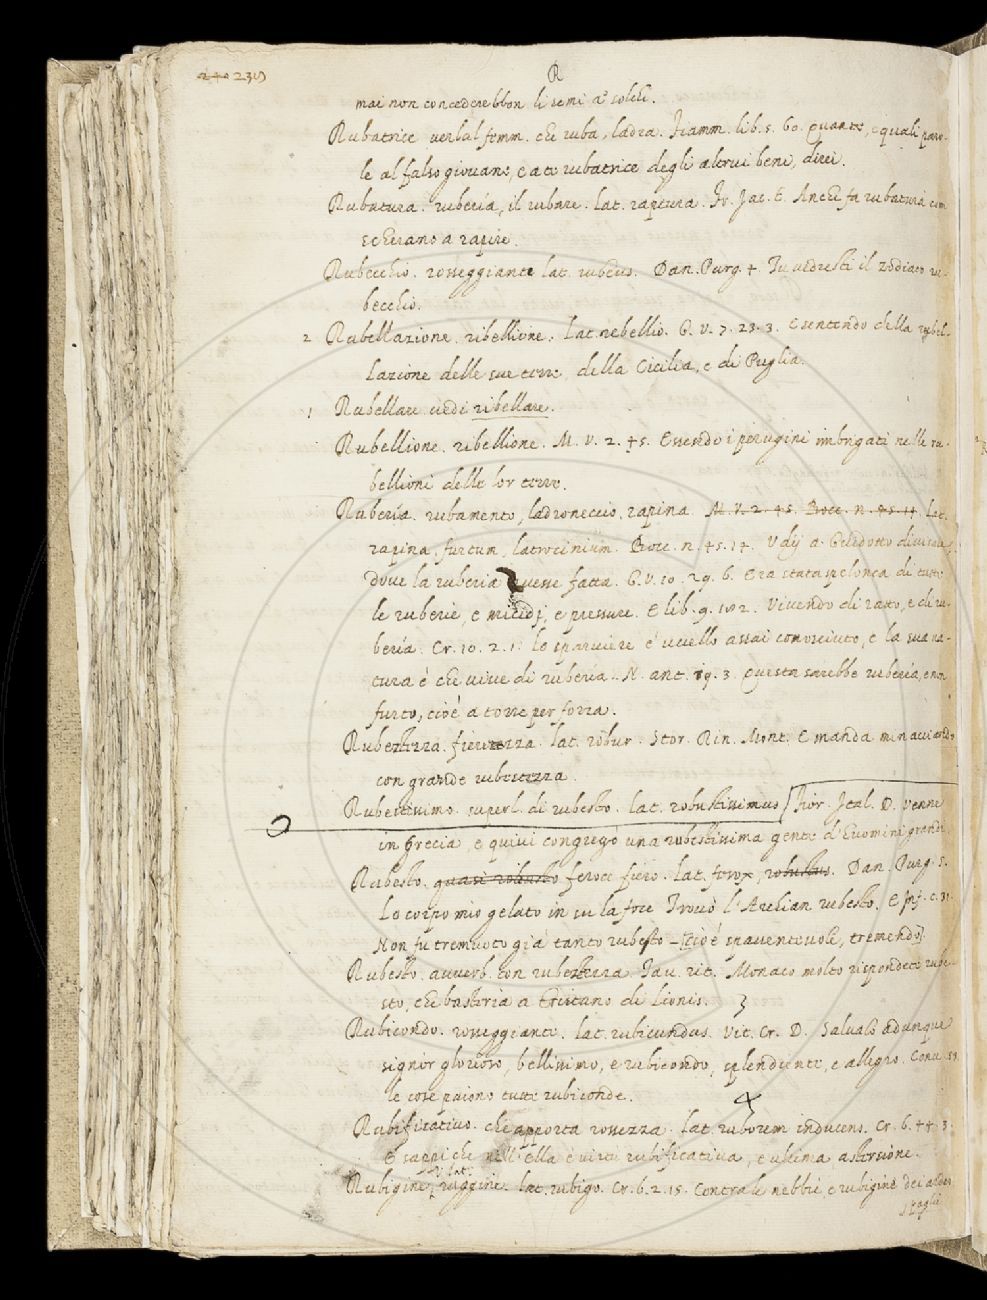 240 239
R
mai non concederebbon li semi a' solchi.
Rubatrice verbal femm. che ruba, ladra. Fiamm. lib. 5. 60. Quante, e quali paro-
le al falso giovane, e a te rubatrice degli altrui beni, direi.
Rubatura. ruberia, il rubare. lat. raptura. Fr. Jac. T. Anche fa rubatura com
scherano a rapire.
Rubecchio. rosseggiante lat. rubeus. Dan. Purg. 4. Tu vedresti il zodiaco ru-
becchio.
2 Rubellazione. ribellione. Lat. rebellio. G. V. 7. 23. 3. E sentendo della rubel-
lazione delle sue terre della Cicilia, e di Puglia.
1 Rubellare vedi ribellare.
Rubellione. ribellione. M. V. 2. 45. Essendo i perugini imbrigati nelle ru-
bellioni delle lor terre.
Ruberia. rubamento, ladroneccio, rapina. M. V. 2. 45. Bocc. n. 45. 14. lat.
rapina, furtum, latrocinium. Bocc. n. 45. 14. Vdij a Ghidotto
dove la ruberia avesse fatta. G. V. 10. 29. 6. Era stata spelonca di tutte
le ruberie, e micidj, e pressure. E lib. 9. 102. Vivendo di ratto, e di ru-
beria. Cr. 10. 2. 1. Lo sparviere è uccello assai conosciuto, e la sua na-
tura è che vive di ruberia. N. ant. 19. 3. Questa sarebbe ruberia, e non
furto, cioè a torre per forza.
Rubestezza. fierezza. lat. robur. Stor. Rin. Mont. E manda minacciando
con grande rubestezza.
Rubestissimo. superl. di rubesto. lat. robustissimus Fior. Ital. D. Venne
in Grecia, e quivi congregò una rubestissima gente d'huomini grandi
Rubesto. quasi robusto feroce fiero. lat. ferox, robustus. Dan. Purg. 5.
Lo corpo mio gelato in su la foce Trovò l'Archian rubesto. E Inf. c. 31.
Non fu tremuoto già tanto rubesto - cioè spaventevole, tremendo
Rubesto. avverb. con rubestezza Tav. rit. Monaco molto rispondete rube-
sto, che basteria a Tristano di Lionis.
3
Rubicondo. rosseggiante. lat. rubicundus. Vit. Cr. D. Salvalo adunque
signor glorioso, bellissimo, e rubicondo, splendiente, e allegro.
le cose paiono tutte rubiconde.
4
Rubificativo. che apporta rossezza. lat. ruborem inducens. Cr. 6. 44. 3.
E sappi che nell'ella è virtù rubificativa, e ultima astersione.
V. lat.
Rubigine, ruggine. lat. rubigo. Cr. 6. 2. 15. Contra le nebbie, e rubigine dei